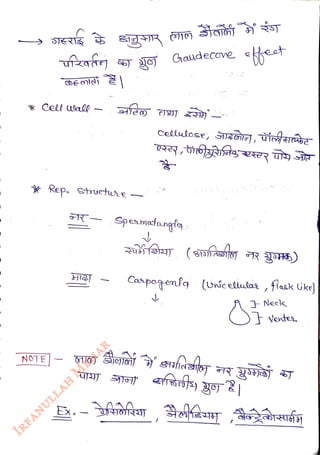 → गहराई के अनुसार लाल शैवालों में रंग
परिवर्तन का गुण Gaudecove effect
कहलाता है।
* Cell wall – जटिल तथा इसमें –
Cellulose, जाइलोन, पॉलीसल्फेट
एस्टर, पाये जाते
है
* Rep. structure –
नर – Spermatangia
↓
स्पर्मेशिया (अगतिशील नर युग्मक)
मादा – Carpogonia (Unicellular, flask like)
↓
} → Neck
} → Venter
NOTE – लाल शैवालों में अगतिशील नर युग्मकों का
पाया जाना अद्वितीय गुण है।
Ex. – ग्रेसिलेरिया, जैलीडियम, बैक्ट्रेकोस्पर्मम
IRFANULLAH